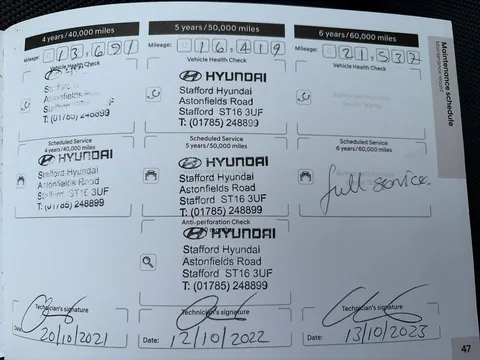 4 years/40,000 miles
Mileage: 13,691
Vehicle Health Check
T: (01785) 248899
Scheduled Service
4 years/40,000 miles
HYUNDAI
Stafford Hyundai
Astonfields Road
Stafford ST16 3UF
T: (01785) 248899
Technician's signature
Date: 20/10/2021
5 years/50,000 miles
Mileage: 16,419
Vehicle Health Check
HYUNDAI
Stafford Hyundai
Astonfields Road
Stafford ST16 3UF
T: (01785) 248899
Scheduled Service
5 years/50,000 miles
HYUNDAI
Stafford Hyundai
Astonfields Road
Stafford ST16 3UF
T: (01785) 248899
Anti-perforation Check
HYUNDAI
Stafford Hyundai
Astonfields Road
Stafford ST16 3UF
T: (01785) 248899
Technician's signature
Date: 12/10/2022
6 years/60,000 miles
Mileage: 21,537
Vehicle Health Check
Scheduled Service
6 years/60,000 miles
full service.
Technician's signature
Date: 13/10/2023
Maintenance schedule
47